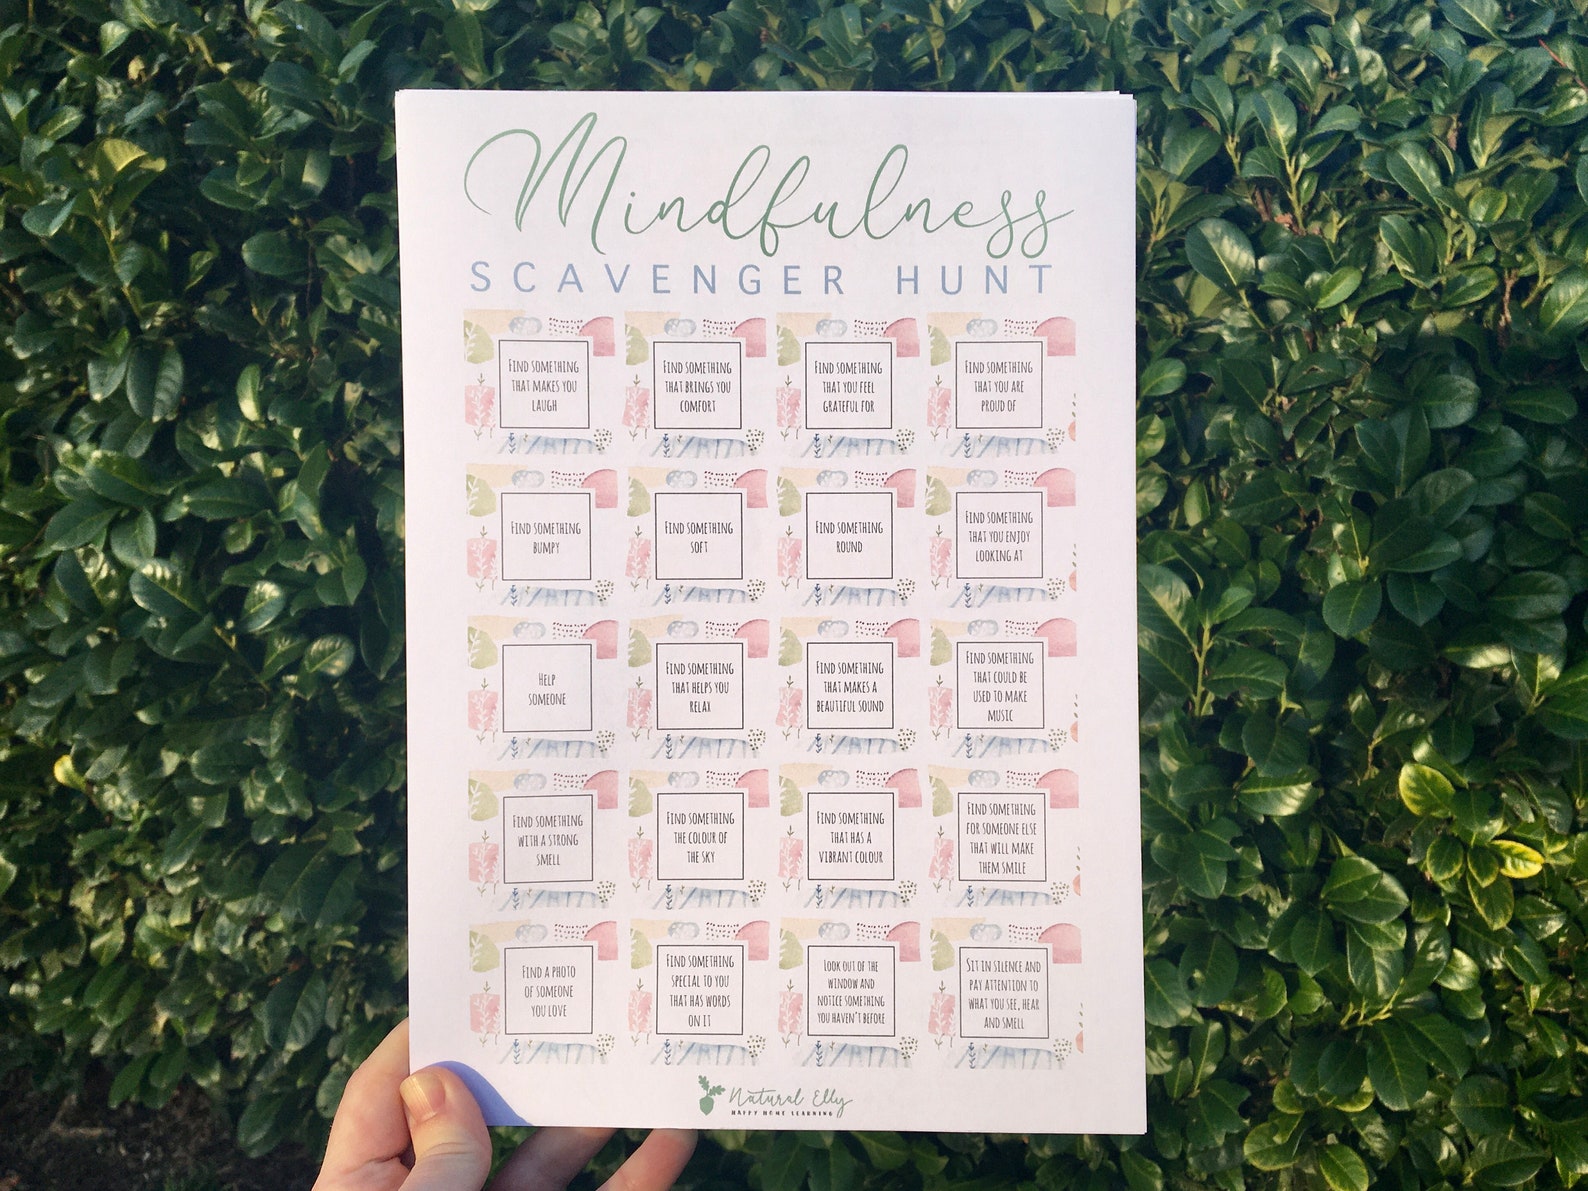 Mindfulness
SCAVENGER HUNT
FIND SOMETHING
THAT MAKES YOU
LAUGH
FIND SOMETHING
THAT BRINGS YOU
COMFORT
FIND SOMETHING
THAT YOU FEEL
GRATEFUL FOR
FIND SOMETHING
THAT YOU ARE
PROUD OF
FIND SOMETHING
BUMPY
FIND SOMETHING
SOFT
FIND SOMETHING
ROUND
FIND SOMETHING
THAT YOU ENJOY
LOOKING AT
HELP
SOMEONE
FIND SOMETHING
THAT HELPS YOU
RELAX
FIND SOMETHING
THAT MAKES A
BEAUTIFUL SOUND
FIND SOMETHING
THAT COULD BE
USED TO MAKE
MUSIC
FIND SOMETHING
WITH A STRONG
SMELL
FIND SOMETHING
THE COLOUR OF
THE SKY
FIND SOMETHING
THAT HAS A
VIBRANT COLOUR
FIND SOMETHING
FOR SOMEONE ELSE
THAT WILL MAKE
THEM SMILE
FIND A PHOTO
OF SOMEONE
YOU LOVE
FIND SOMETHING
SPECIAL TO YOU
THAT HAS WORDS
ON IT
LOOK OUT OF THE
WINDOW AND
NOTICE SOMETHING
YOU HAVEN'T BEFORE
SIT IN SILENCE AND
PAY ATTENTION TO
WHAT YOU SEE, HEAR
AND SMELL
Natural Elly
HAPPY HOME LEARNING